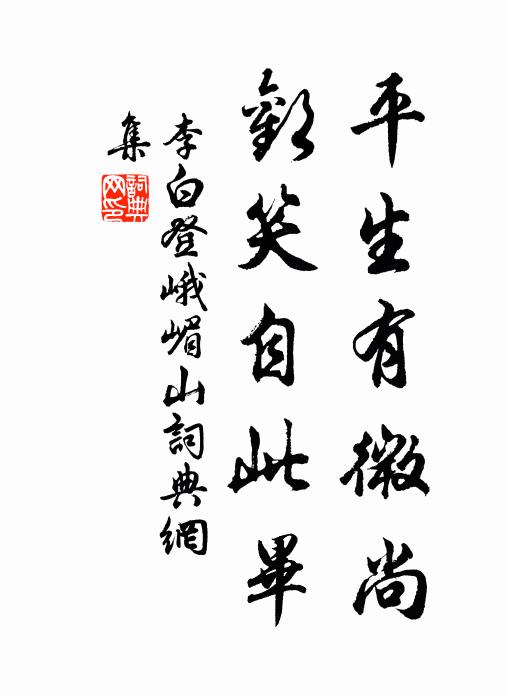 平生有微尚
歡笑自此畢
李白登峨嵋山詞典網
集
詞典網印